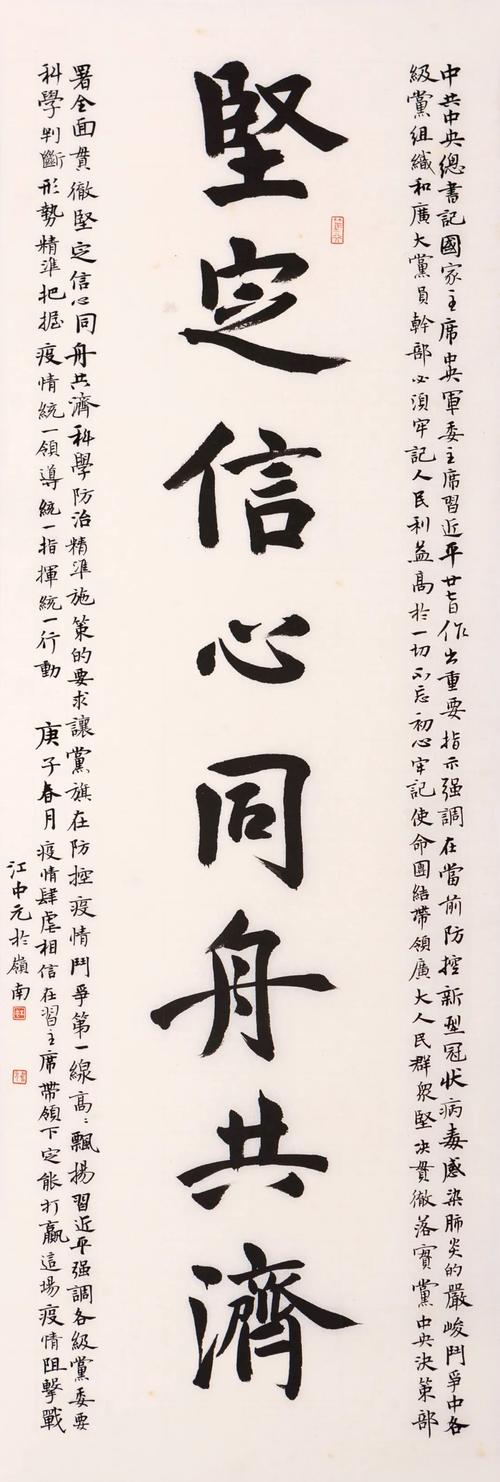 中共中央總書記國家主席中央軍委主席習近平廿七日作出重要指示强調在當前防控新型冠狀病毒感染肺炎的嚴峻鬥爭中各
級黨組織和廣大黨員幹部必須牢記人民利益高於一切不忘初心牢記使命團結帶領廣大人民群衆堅决貫徹落實黨中央决策部
堅定信心同舟共濟
署全面貫徹堅定信心同舟共濟科學防治精準施策的要求讓黨旗在防控疫情鬥爭第一線高高飄揚習近平强調各級黨委要
科學判斷形勢精準把握疫情統一領導統一指揮統一行動 庚子春月疫情肆虐相信在習主席帶領下定能打贏這場疫情阻擊戰
江中元於嶺南